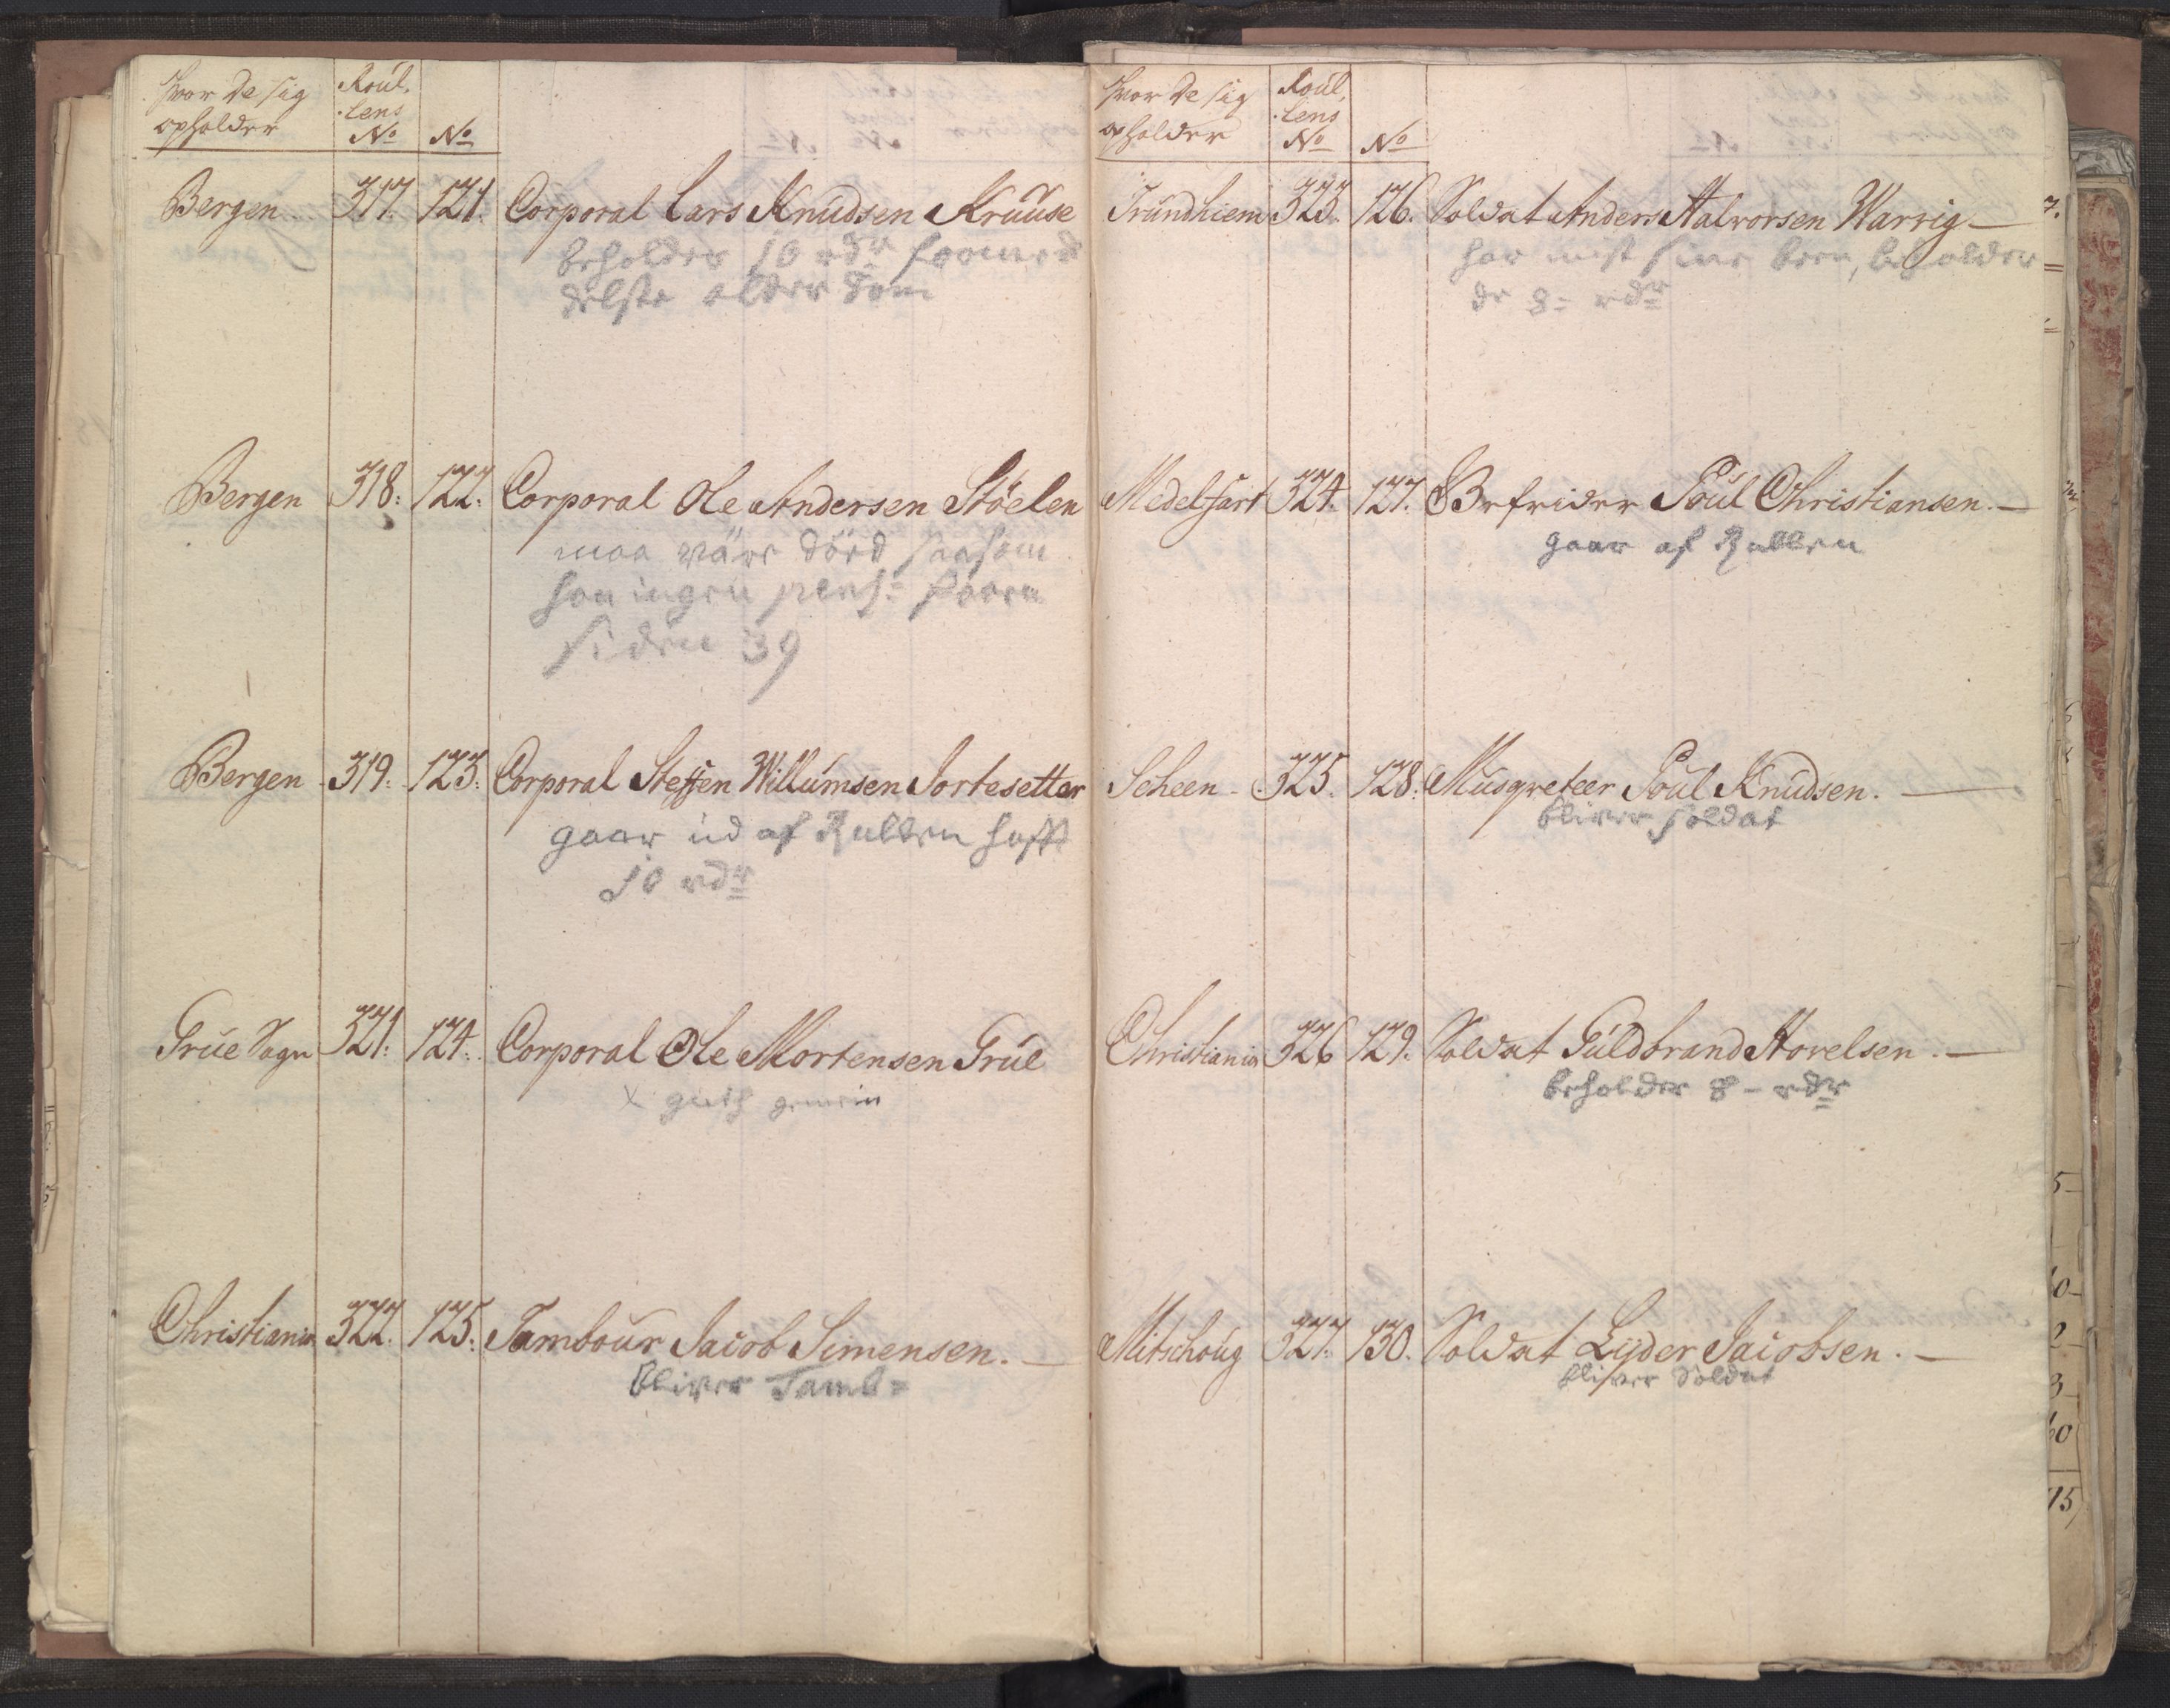 hvor de sig
opholder
Roul,
lens
No
No
Bergen 317. 121. Corporal Lars Knudsen Kruuse
beholder 10 rdr formed
delste alderdom
Bergen 318: 122. Corporal Ole Andersen Stöelen
maa være död saasom
han ingen pens:
siden 39
Bergen 319. 123. Corporal Steffen Willumsen Jortesetter
gaar ud af Rullen hafft
10 rdr
Grue Sogn 321. 124. Corporal Ole Mortensen Grue
x gemein
Christiania 322. 125. Tambour Jacob Simensen. —
bliver Tamb=
hvor de sig
opholder
Roul,
lens
No
No
Trundhiem 323. 126. Soldat Anders Halvorsen Warrig —
har mist sine been, beholder
de 8= rdr
Medelfart 324. 127. Befrider Poul Christiansen. —
gaar af Rullen
Scheen 325. 128. Musqveteer Poul Knudsen. —
bliver soldat
Christiania 326 129. Soldat Guldbrand Hovelsen. —
beholder 8 – rdr
Mitschoug 327. 130. Soldat Lyder Jacobsen. —
bliver Soldat